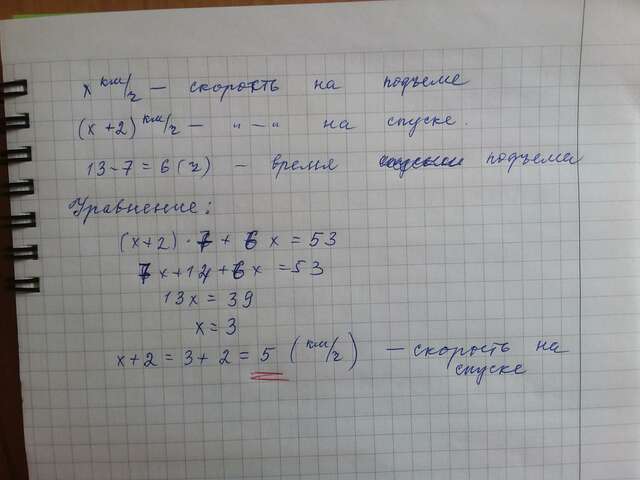 x км/ч — скорость на подъеме
(x+2) км/ч — "—" на спуске.
13-7=6(ч) - время подъема
Уравнение:
(x+2)·7+6x=53
7x+14+6x=53
13x=39
x=3
x+2=3+2=5 (км/ч) — скорость на
спуске